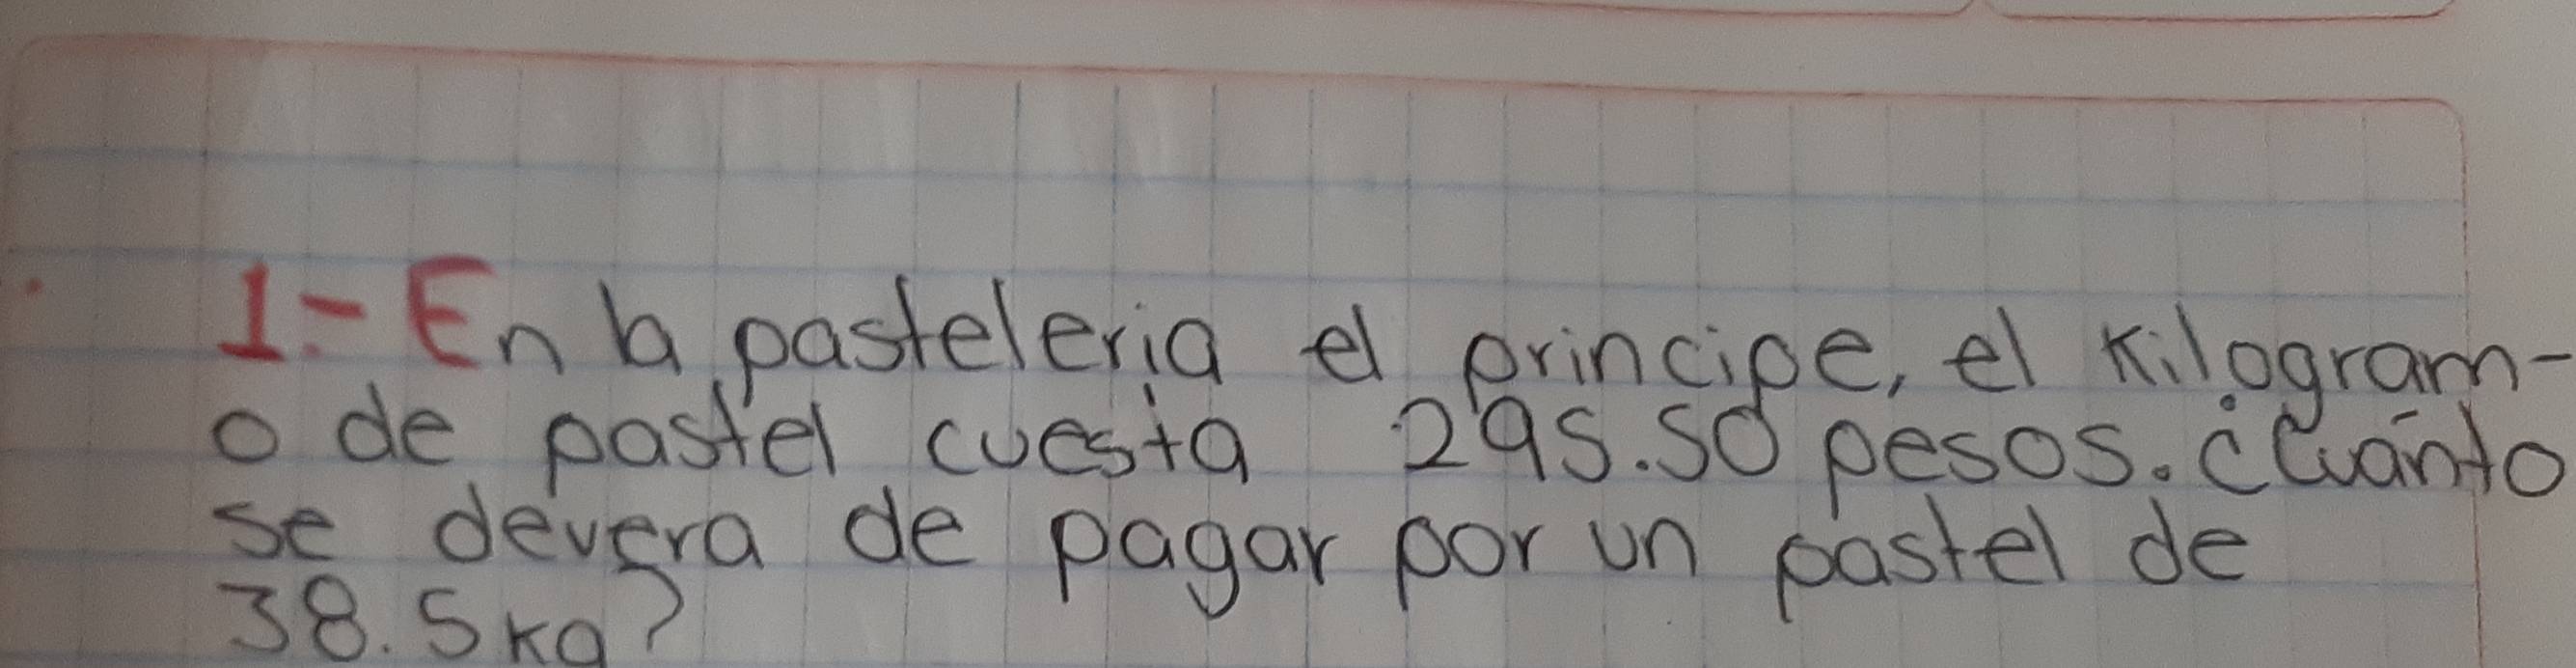 1.- En la pasteleria el principe, el kilogram-
o de pastel cuesta 295.50 pesos. ¿Cuánto
se devera de pagar por un pastel de
38.5 kg?